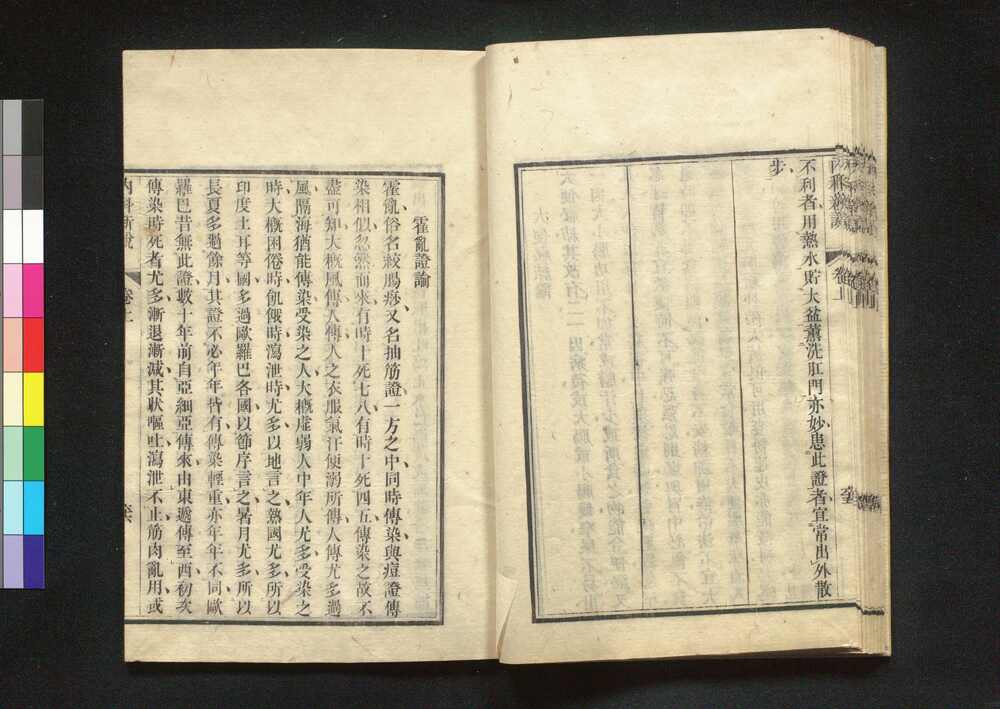 不利者用熱水貯大盆薰洗肛門亦妙患此證者宜常出外散
步
霍亂證論
霍亂俗名絞腸痧又名抽筋證一方之中同時傳染與痘證傳
染相似忽然而來有時十死七八有時十死四五傳染之故不
盡可知大概風傳人傳人之衣服氣汗便溺所傳人傳尤多過
風隔海猶能傳染受染之人大概虛弱人中年人尤多受染之
時大概困倦時飢餓時瀉泄時尤多以地言之熱國尤多所以
印度土耳等國多過歐羅巴各國以節序言之暑月尤多所以
長夏多過餘月其證不必年年皆有傳染輕重亦年年不同歐
羅巴昔無此證數十年前自亞細亞傳來由東遞傳至西初次
傳染時死者尤多漸退漸減其狀嘔吐瀉泄不止筋肉亂用或
內科新說 卷上